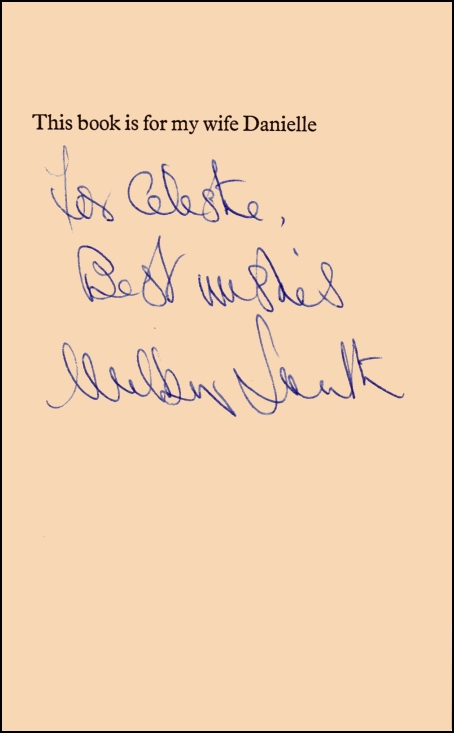 This book is for my wife Danielle
For Celeste,
Best wishes
Wilbur Smith